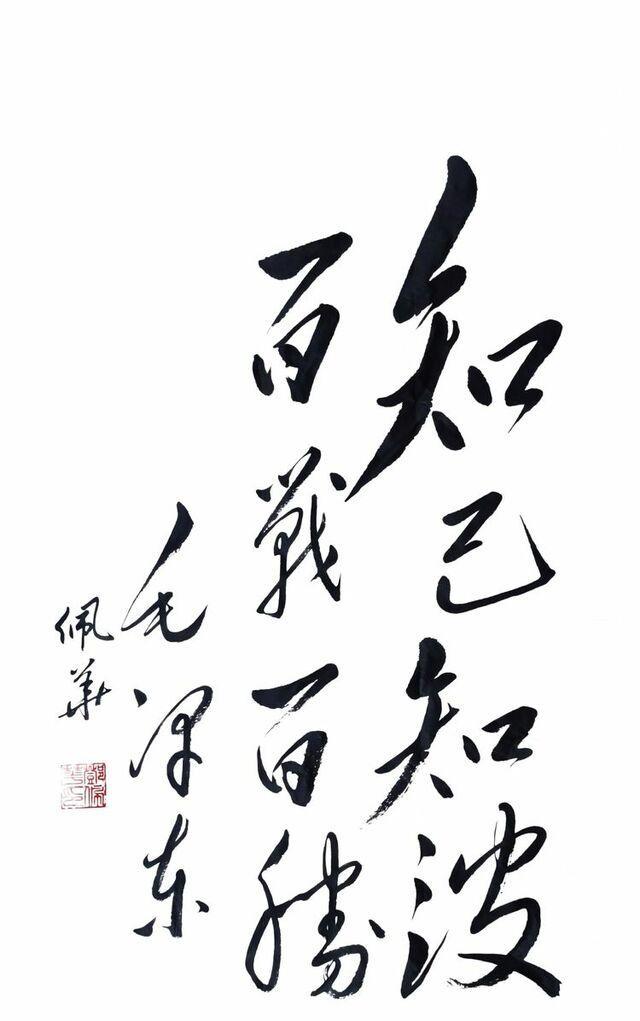 知己知彼
百戰百勝
毛泽东
佩華